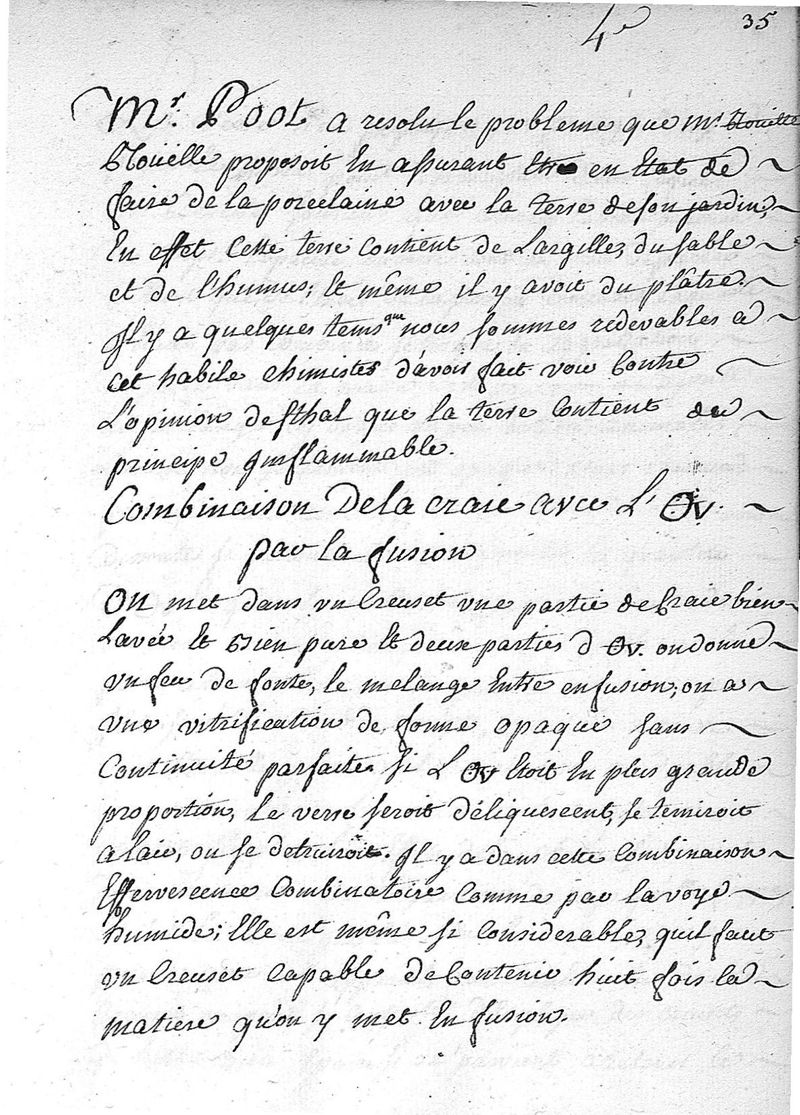 4e
35
Mr. Poot a resolu le probleme que Mr. Roüelle
Roüelle proposoit En assurant Etre en Etat de
faire de la porcelaine avec la terre de son jardin,
En effet Cette terre Contient de L'argille, du sable
et de l'humus; Et même il y avoit du plâtre.
Il y a quelques tems que nous sommes redevables a
cet habile chimistes d'avoir fait voir Contre
L'opinion de sthal que la terre Contient du
principe inflammable.
Combinaison De la craie avec L'
par la fusion
On met dans un Creuset une partie de Craie bien
Lavée Et bien pure Et deux parties d on donne
un feu de fonte, le melange Entre en fusion, on a
une vitrification de forme opaque sans
Continuité parfaite. si L Etoit En plus grande
proportion, le verre seroit déliquescent, se terniroit
a l'air, ou se detruiroit. Il y a dans cette Combinaison
Effervescence Combinatoire Comme par la voye
humide; Elle est même si Considerable, qu'il faut
un Creuset Capable de Contenir huit fois la
matiere qu'on y met En fusion.